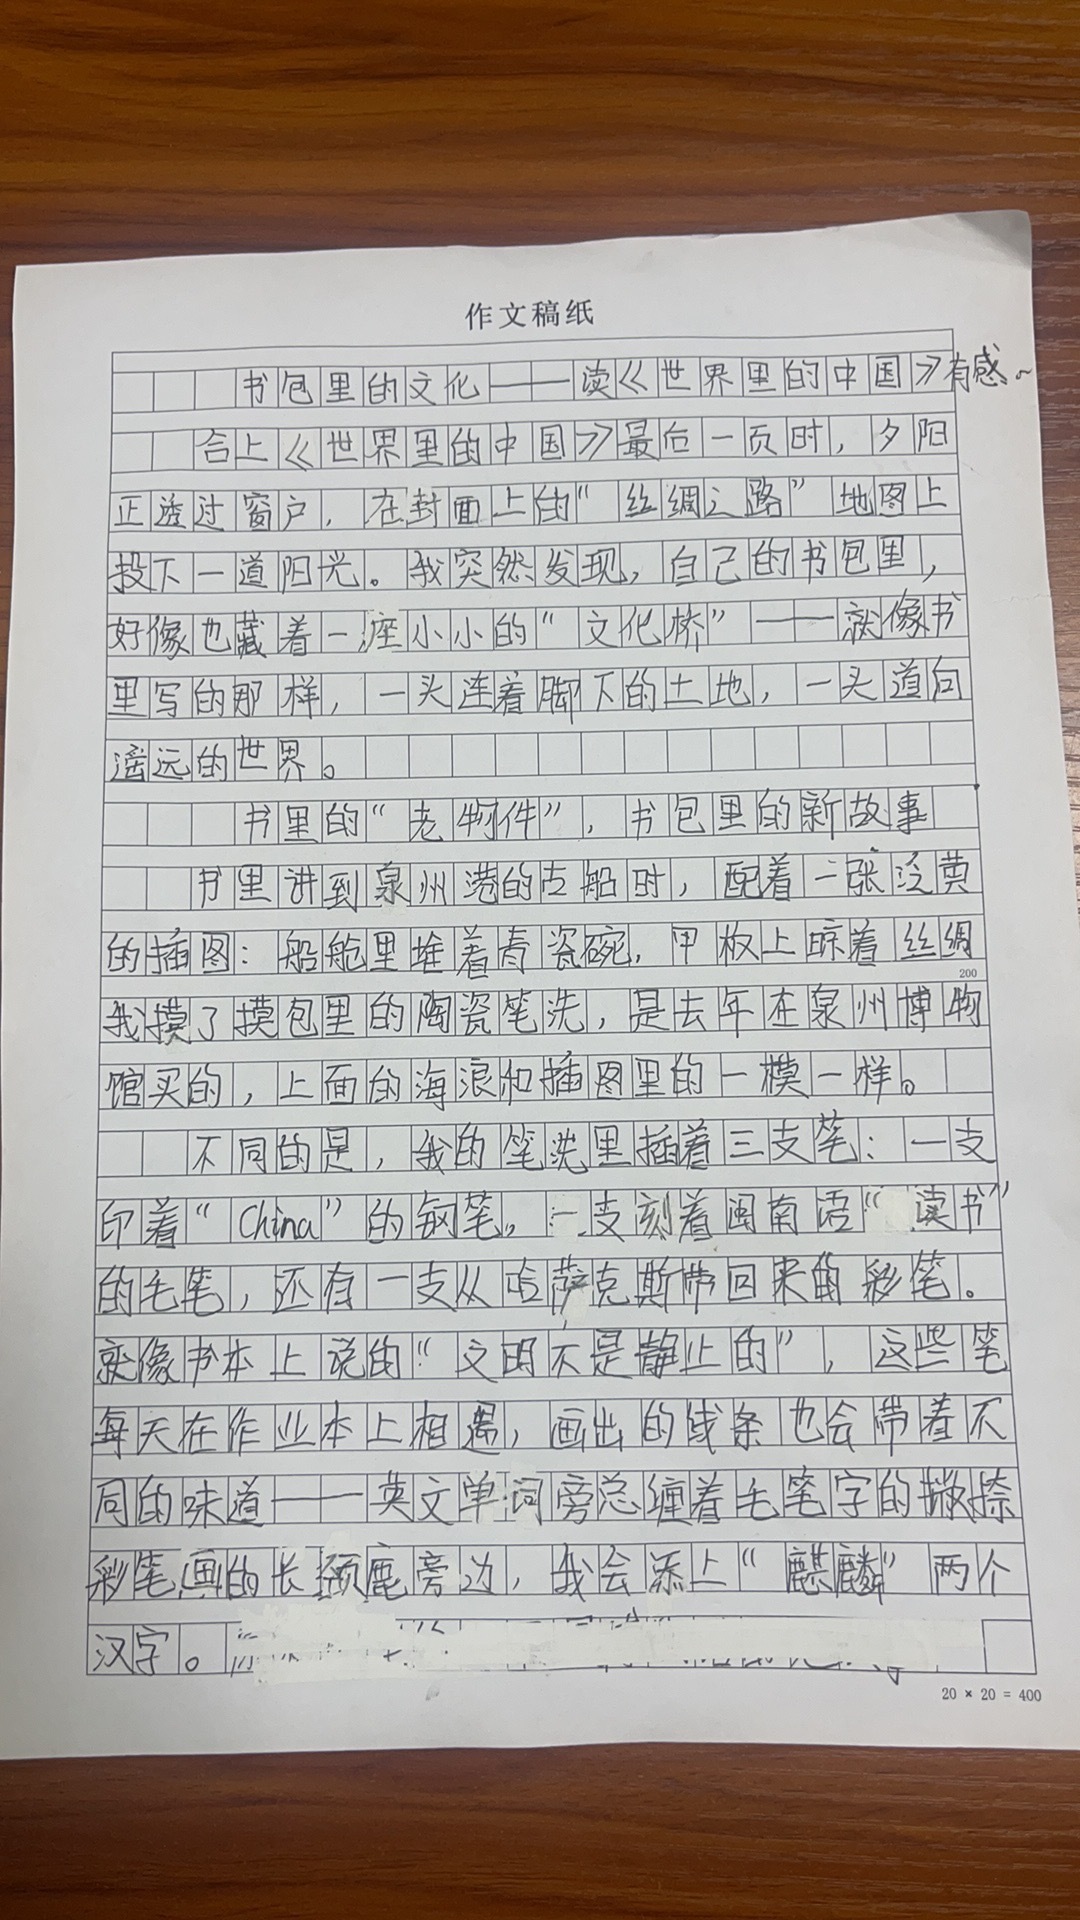 作文稿纸
书包里的文化——读《世界里的中国》有感~
合上《世界里的中国》最后一页时，夕阳
正透过窗户，在封面上的“丝绸之路”地图上
投下一道阳光。我突然发现，自己的书包里，
好像也藏着一座小小的“文化桥”——就像书
里写的那样，一头连着脚下的土地，一头道向
遥远的世界。
书里的“老物件”，书包里的新故事
书里讲到泉州港的古船时，配着一张泛黄
的插图：船舱里堆着青瓷碗，甲板上晾着丝绸
200
我摸了摸包里的陶瓷笔洗，是去年在泉州博物
馆买的，上面的海浪和插图里的一模一样。
不同的是，我的笔洗里插着三支笔：一支
印着“China”的钢笔，一支刻着闽南语“读书”
的毛笔，还有一支从哈萨克斯带回来的彩笔。
就像书本上说的“文明不是静止的”，这些笔
每天在作业本上相遇，画出的线条也会带着不
同的味道——英文单词旁总缠着毛笔字的撇捺
彩笔画的长颈鹿旁边，我会添上“麒麟”两个
汉字。
20 × 20 = 400